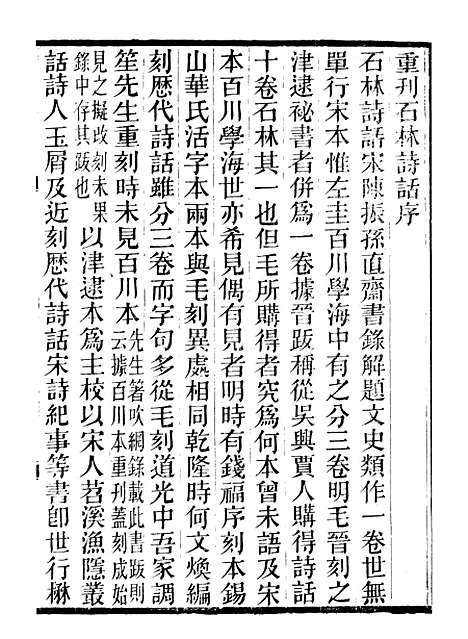 重刊石林詩話序
石林詩語宋陳振孫直齋書錄解題文史類作一卷世無
單行宋本惟左圭百川學海中有之分三卷明毛晉刻之
津逮祕書者併爲一卷據晉跋稱從吳興賈人購得詩話
十卷石林其一也但毛所購得者究爲何本曾未語及宋
本百川學海世亦希見偶有見者明時有錢福序刻本錫
山華氏活字本兩本與毛刻異處相同乾隆時何文煥編
刻歷代詩話雖分三卷而字句多從毛刻道光中吾家調
笙先生重刻時未見百川本先生箸吹網錄載此書跋則
云據百川本重刊蓋刻成始
見之擬改刻未果
錄中存其跋也以津逮本爲主校以宋人苕溪漁隱叢
話詩人玉屑及近刻歷代詩話宋詩紀事等書卽世行楙